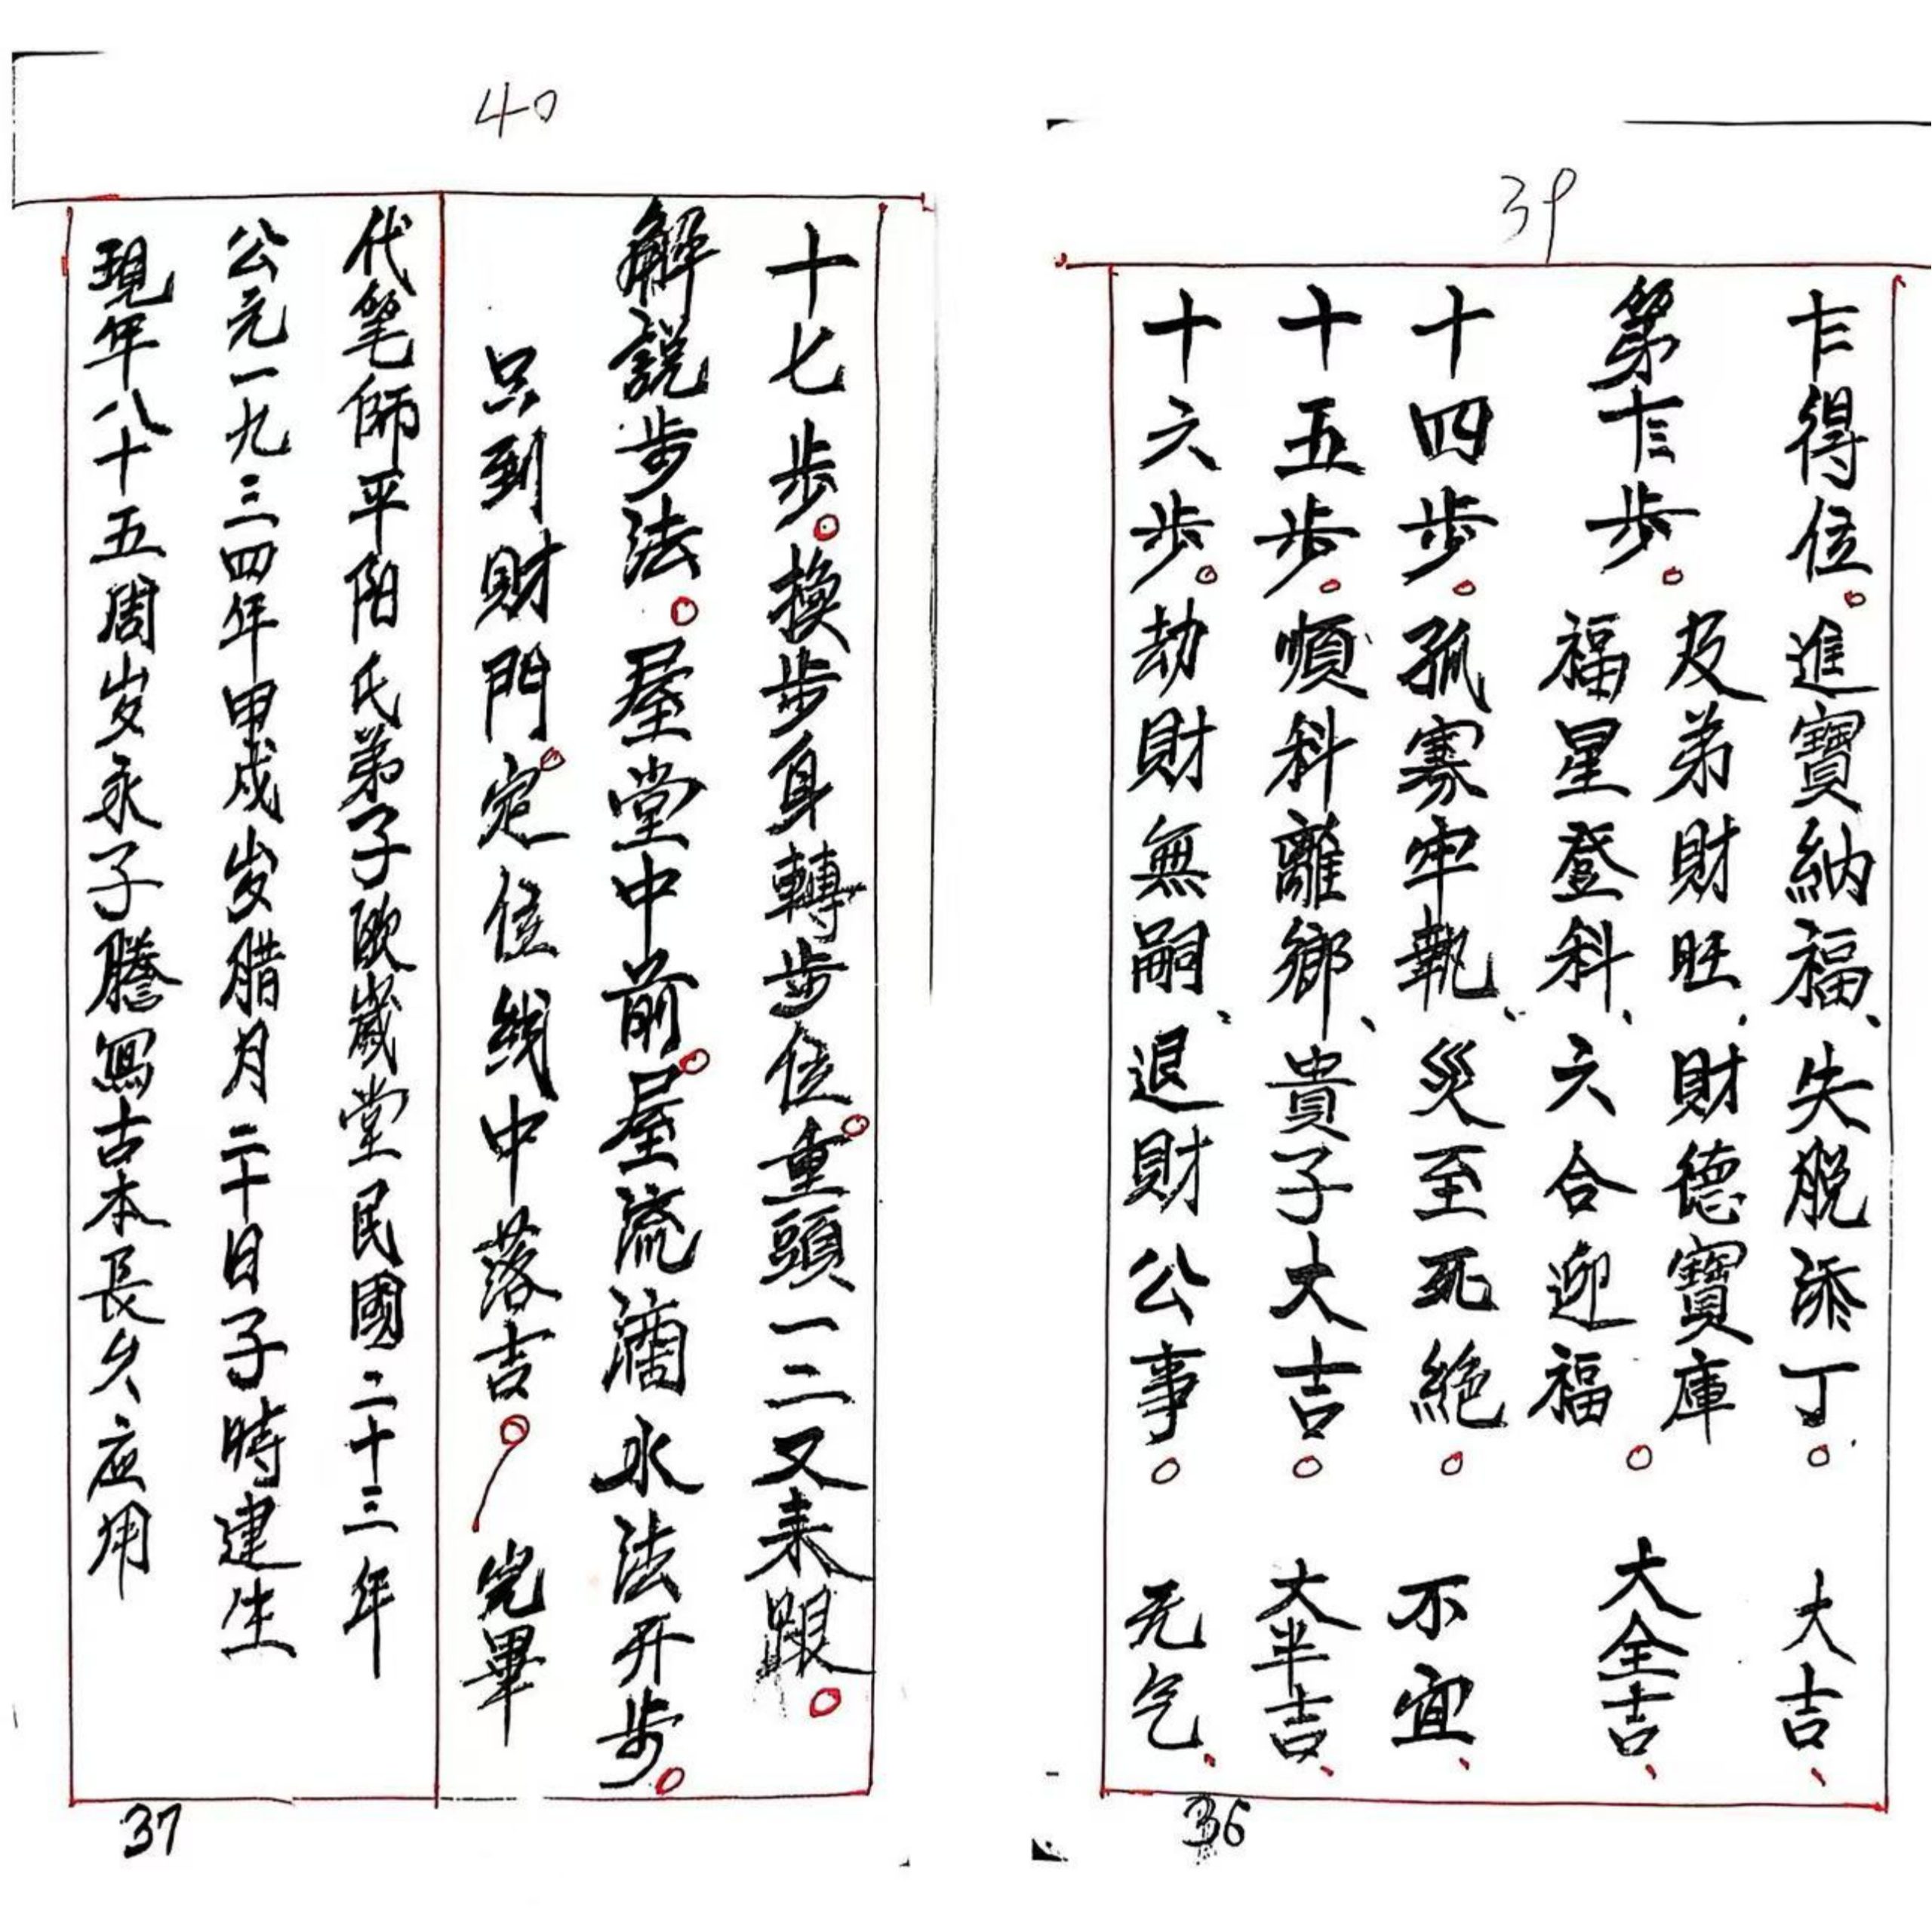 39
乍得位。進寶納福、失脱添丁。大吉、
第 步。及弟財旺、財德寶庫
福星登科、六合迎福。大全吉、
十四步。孤寡牢執、災至死絶。不宜、
十五步。順科離鄉、貴子大吉。大半吉、
十六步。劫財無嗣、退財公事。无气、
36
40
十七步。換步身轉步位。重頭一二又来跟。
解説步法。屋堂中前。屋流滴水法开步。
只到財門。定位线中落吉。完畢
代笔師平阳氏弟子欧嵗堂民國二十三年
公元一九三四年甲戍岁腊月二十日子時建生
現年八十五周岁永子騰寫古本長久应用
37